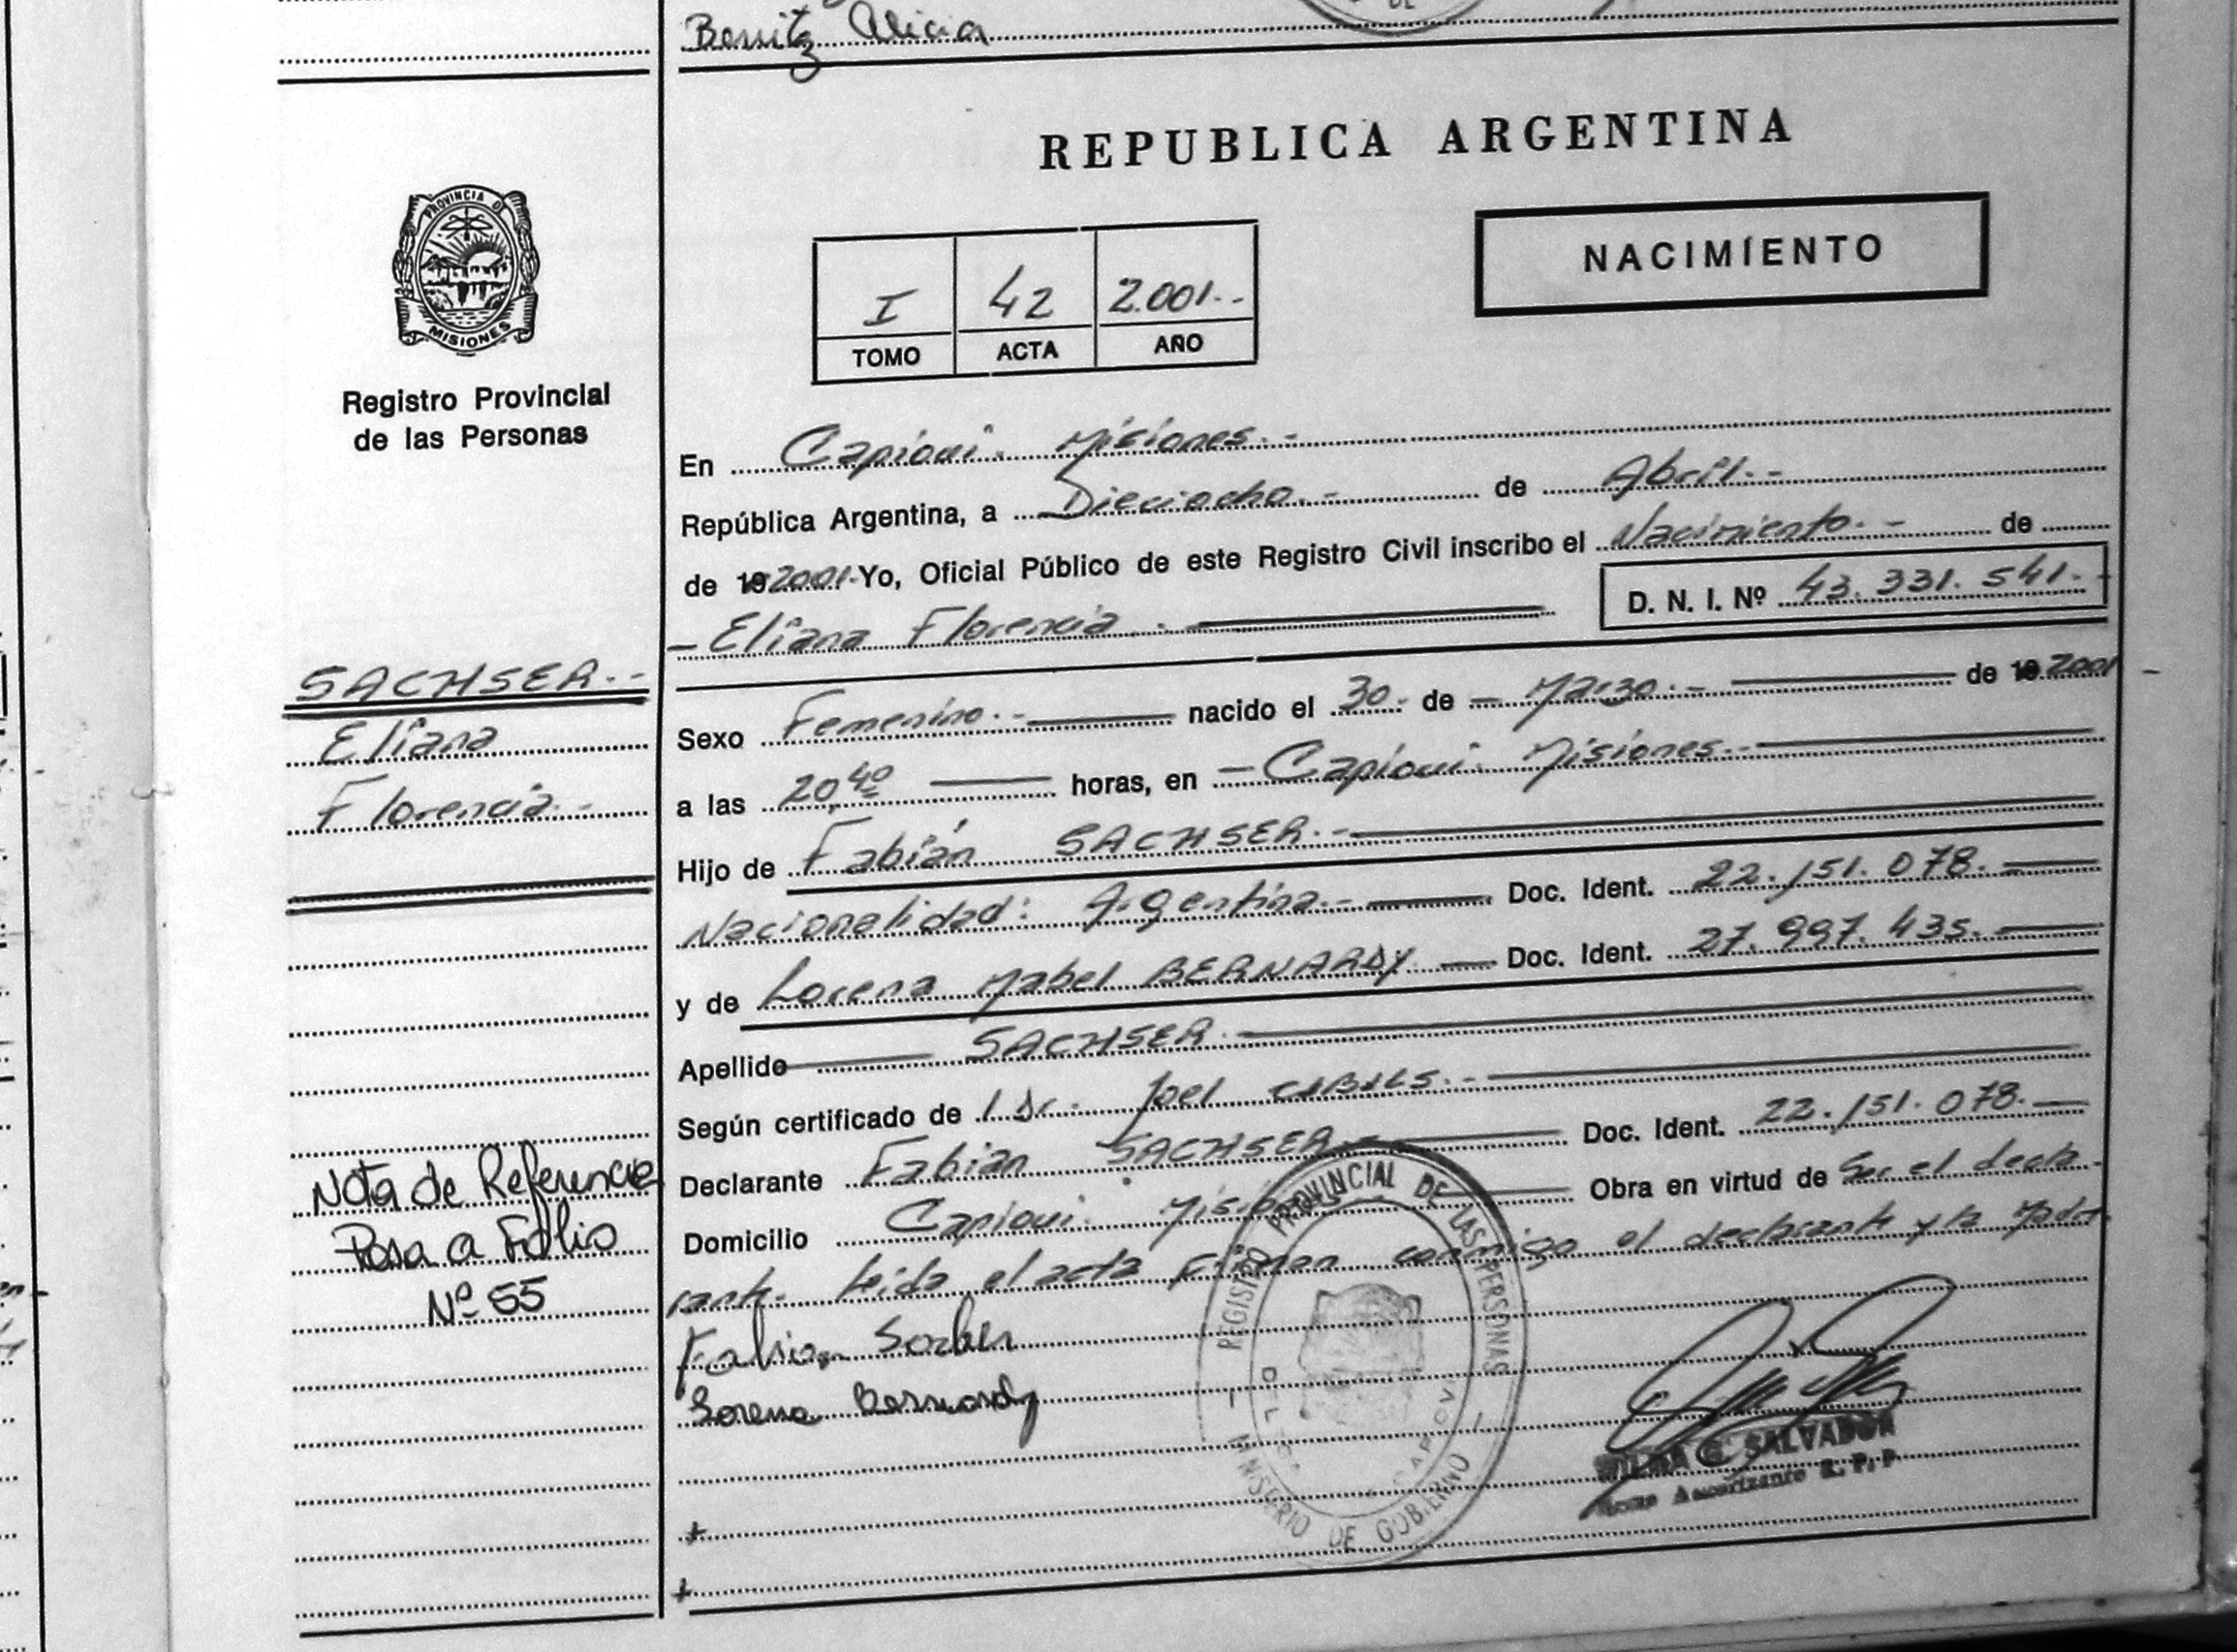 Benitz Alicia
DE
REPUBLICA ARGENTINA
PROVINCIA DE
MISIONES
Registro Provincial
de las Personas
I 42 2.001.-
TOMO ACTA AÑO
NACIMIENTO
En Capioui. Misiones.-
República Argentina, a Dieciocho.- de Abril.-
de 19 2001.- Yo, Oficial Público de este Registro Civil inscribo el Nacimiento.- de
D. N. I. Nº 43.331.541.-
- Eliana Florencia.-
SACHSER.-
Eliana
Florencia.-
Sexo Femenino.- nacido el 30.- de - Marzo.- de 19 2001
a las 20,40 horas, en - Capioui. Misiones.-
Hijo de Fabián SACHSER.-
Nacionalidad: Argentina.- Doc. Ident. 22.151.078.-
y de Lorena Mabel BERNARDY Doc. Ident. 27.997.435.-
Apellido SACHSER.-
Según certificado de 1 Dr. Joel CIBILS.-
Declarante Fabián SACHSER.- Doc. Ident. 22.151.078.-
Domicilio Capioui. Misiones Obra en virtud de Ser el decla-
rante. Leida el acta firman conmigo el declarante y la Madre
Nota de Referencia
Pasa a Folio
Nº 55
Fabian Sachser
Lorena Bernardy
REGISTRO PROVINCIAL DE LAS PERSONAS
MINISTERIO DE GOBIERNO
WILMA G. SALVADOR
Autorizante R. P. P.